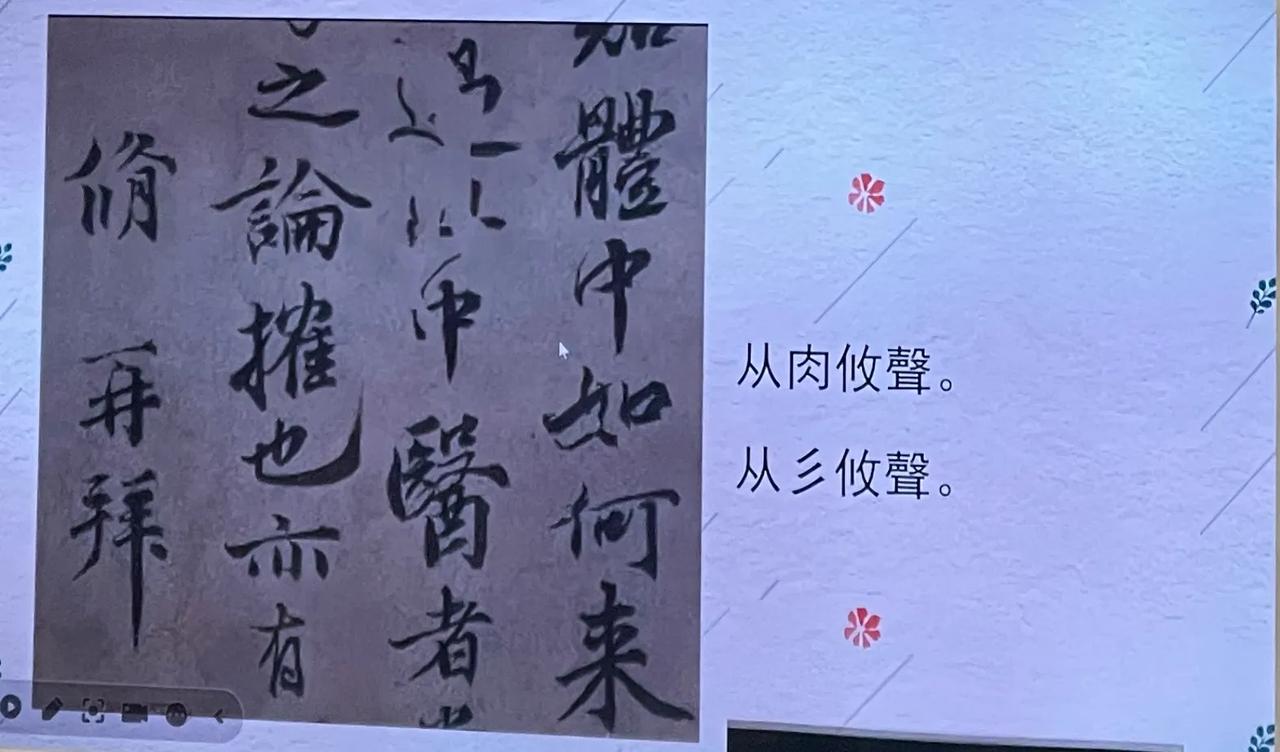 體中如何来
醫者
之論搉也亦有
脩 再拜
从肉攸聲。
从彡攸聲。